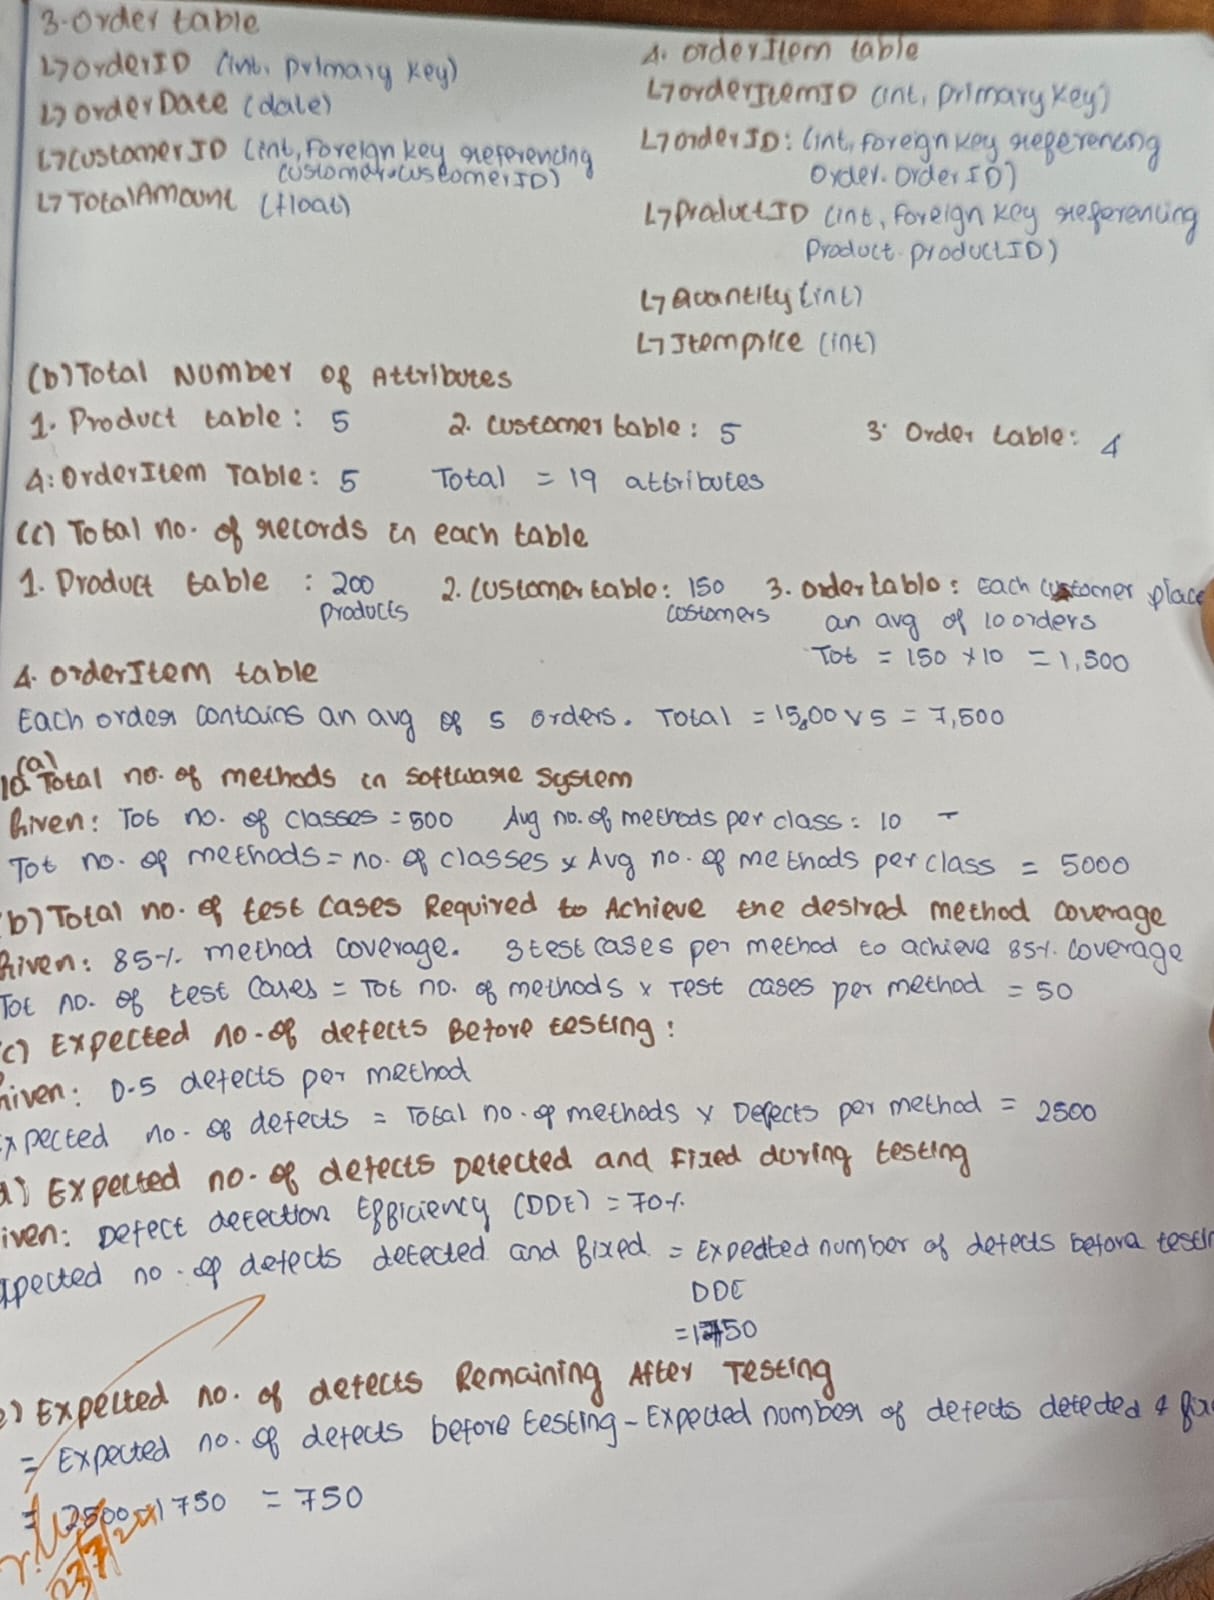 3. Order table
↳ OrderID (int, Primary Key)
↳ OrderDate (date)
↳ CustomerID (int, Foreign key referencing
Customer.CustomerID)
↳ TotalAmount (float)
4. OrderItem table
↳ OrderItemID (int, primary Key)
↳ OrderID: (int, foreign key referencing
Order.OrderID)
↳ ProductID (int, foreign key referencing
Product.productID)
↳ Quantity (int)
↳ Itemprice (int)
(b) Total Number of Attributes
1. Product table: 5 2. customer table: 5 3. Order table: 4
4. OrderItem Table: 5 Total = 19 attributes
(c) Total no. of records in each table
1. Product table : 200 products 2. Customer table: 150 costomers 3. Order table: Each customer place
an avg of 10 orders
Tot = 150 x 10 = 1,500
4. OrderItem table
Each order contains an avg of 5 orders. Total = 15,00 x 5 = 7,500
10. (a) Total no. of methods in software system
Given: Tot no. of classes = 500 Avg no. of methods per class: 10 -
Tot no. of methods = no. of classes x Avg no. of methods per class = 5000
b) Total no. of test cases Required to Achieve the desired method coverage
Given: 85% method coverage. 3 test cases per method to achieve 85% coverage
Tot no. of test Cases = Tot no. of methods x Test cases per method = 50
c) Expected no. of defects Before testing:
Given: 0.5 defects per method
Expected no. of defects = Total no. of methods x Defects per method = 2500
d) Expected no. of defects Detected and Fixed during testing
iven: Defect detection Efficiency (DDE) = 70%
xpected no. of defects detected and fixed = Expedted number of defects before testin
DDE
= 1750
e) Expected no. of defects Remaining After Testing
= Expected no. of defects before testing - Expected number of defects deteded & fixe
= 2500 - 1750 = 750
23/7/24